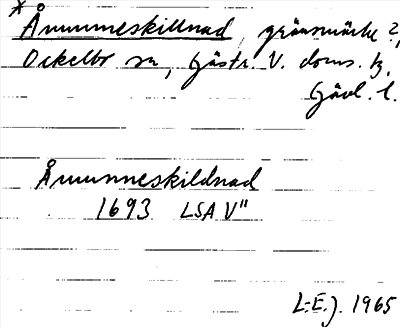 * Åmunneskillnad, gränsmärke ?,
Ockelbo sn, Gästr. V. doms. tg,
Gävl. l.
Åmunneskildnad
1693 LSA V"
L.E.J. 1965